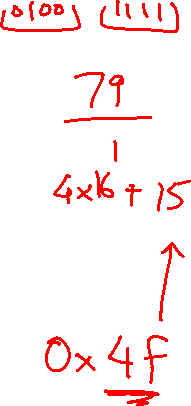 0100 1111
79
1
4x16 + 15
0x4f